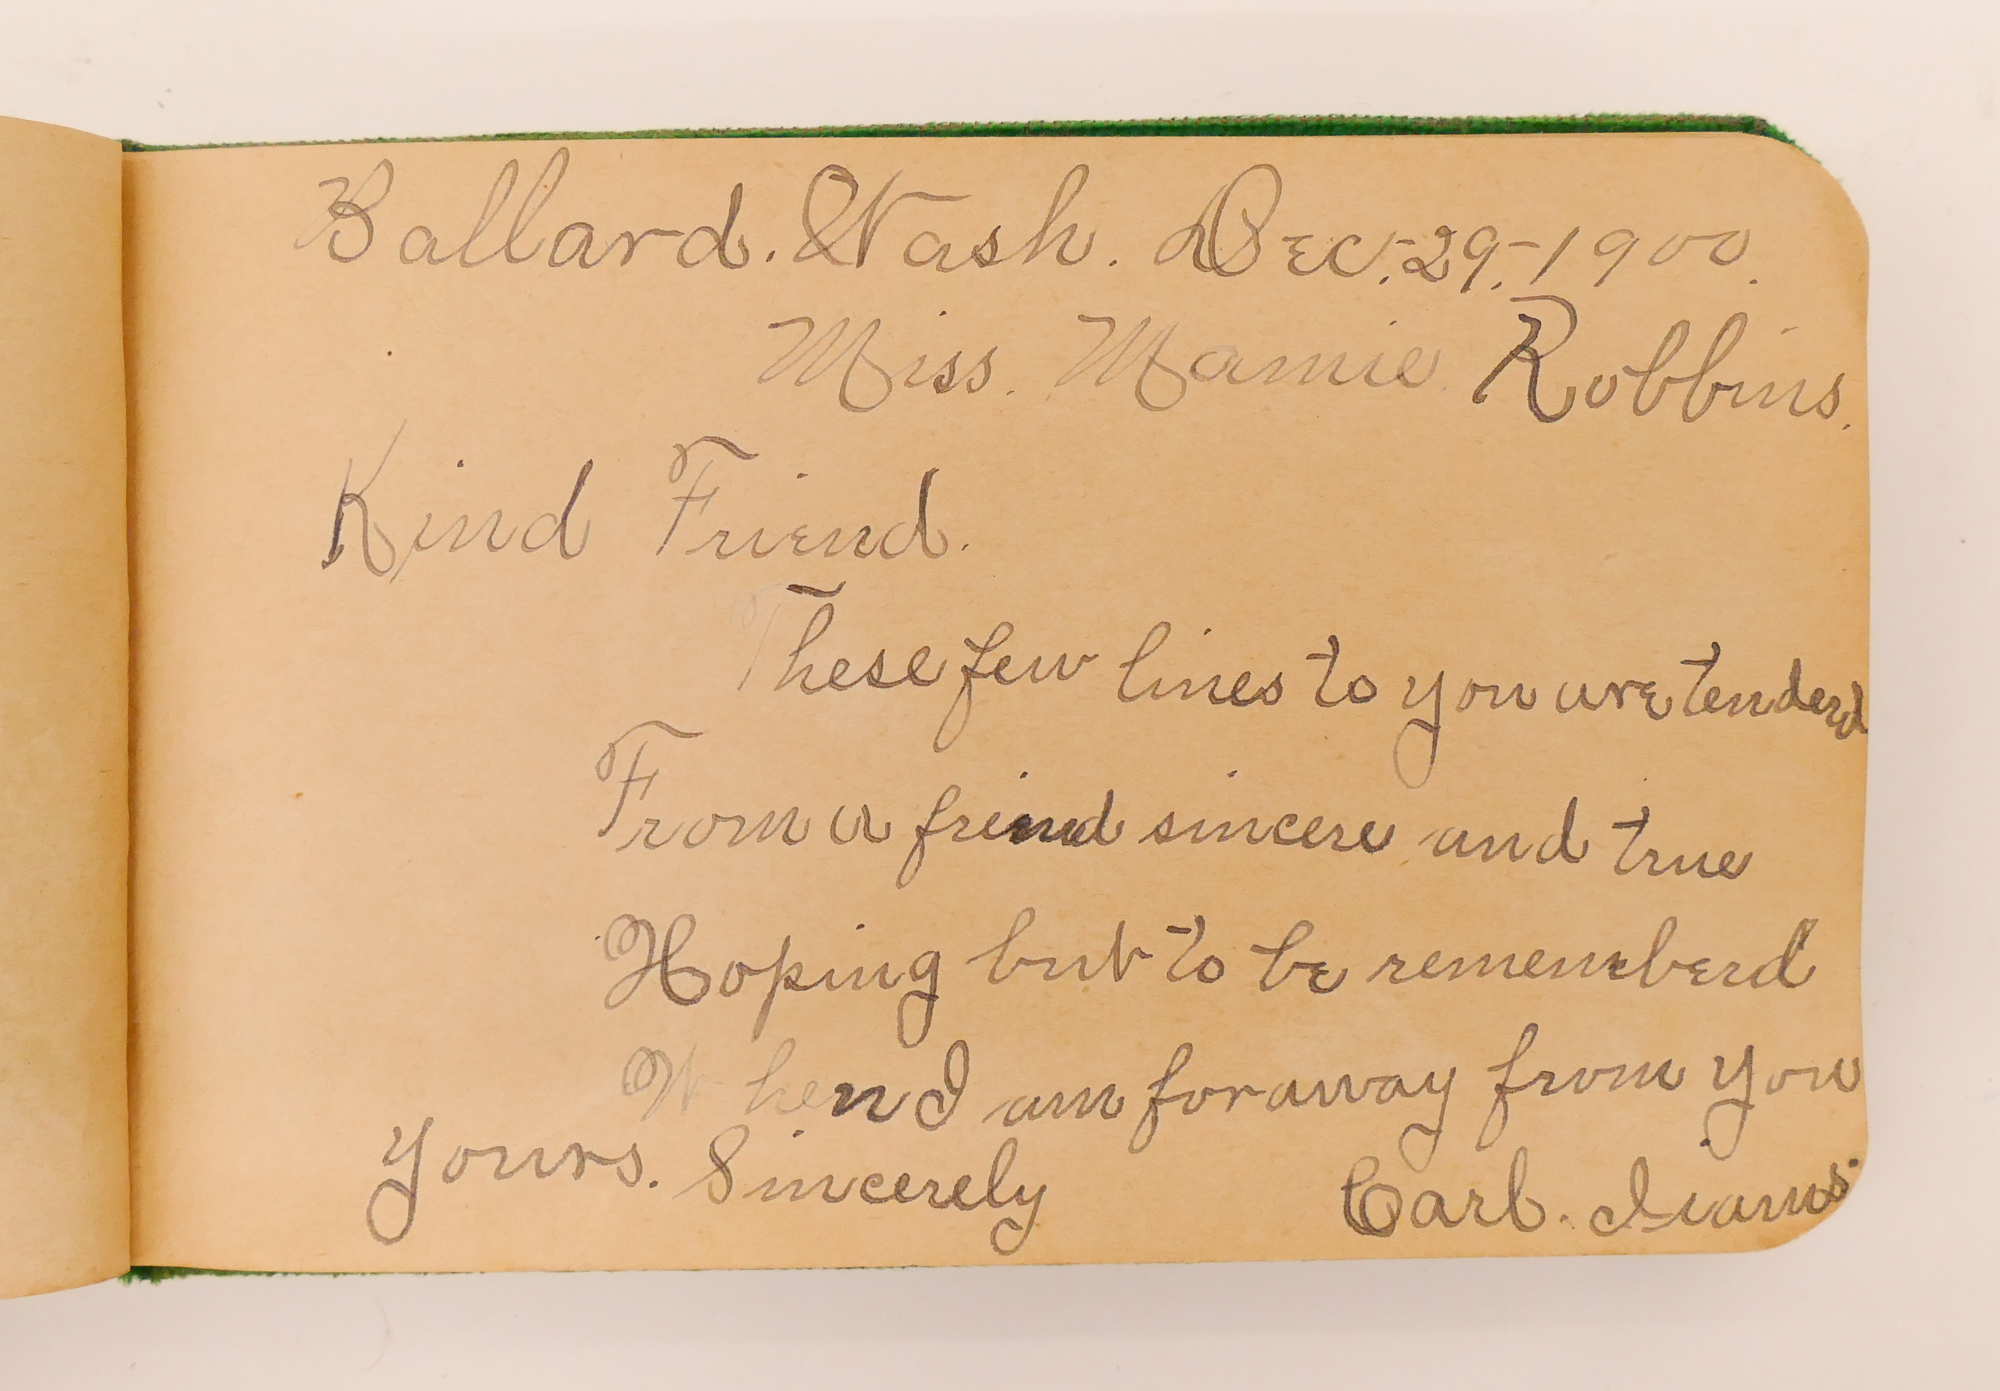 Ballard. Wash. Dec.-29.-1900.
Miss. Mamie Robbins.
Kind Friend.
These few lines to you are tenderd
From a freind sincere and true
Hoping but to be rememberd
When I am for away from you
Yours. Sincerely Carl.